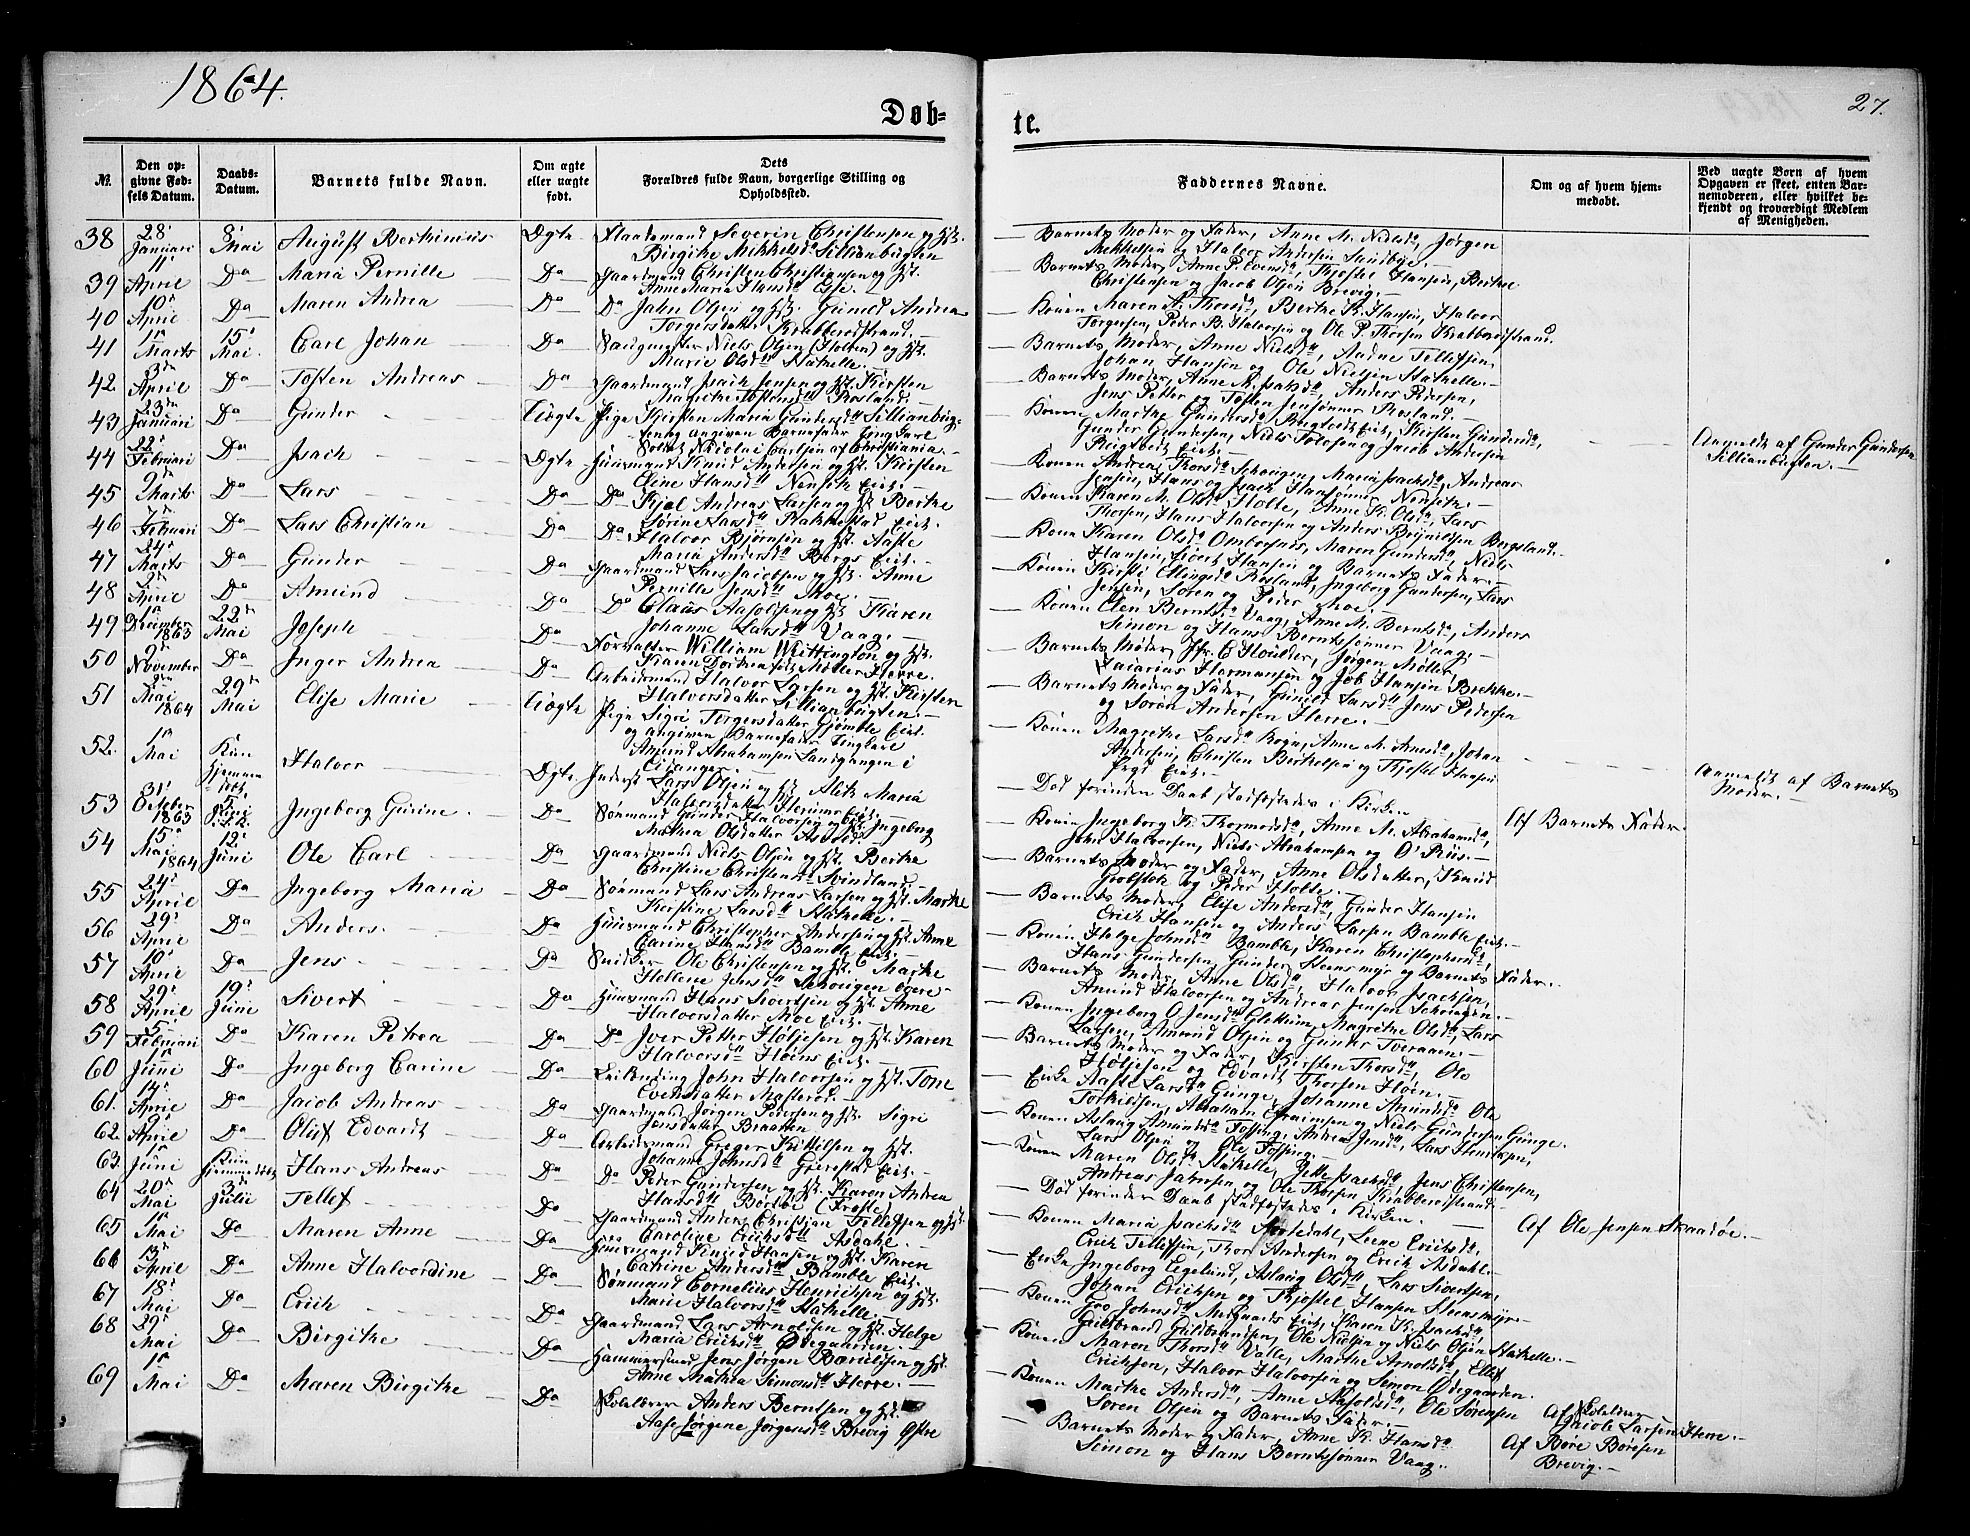 1864.
27.
Døb=
te.
№.
Den op-
givne Fød-
sels Datum.
Daabs-
Datum.
Barnets fulde Navn.
Om ægte
eller uægte
født.
Dets
Forældres fulde Navn, borgerlige Stilling og
Opholdssted.
Faddernes Navne.
Om og af hvem hjem-
medøbt.
Ved uægte Børn af hvem
Opgaven er skeet, enten Bar-
nemoderen, eller hvilket be-
kjendt og troværdigt Medlem
af Menigheden.
38 28 Januari 8 Mai August Bertinius Ægte Severin Christensen og H.
Birgithe Mikkelsd. Sillianbugten
Barnets Moder og Fader, Anne M. Nielsd., Jørgen
Mikkelsen og Halvor Andersen Sundbye.
39 11 April Do Maria Pernille Do Gaardmand Christen Christiansen og H.
Anne Maria Hansd.
Barnets Moder, Anne P. Evensd., Thjostel Hansen, Berthe
Christensen og Jacob Olsen Brevig.
40 10 April Do Maren Andrea Do Do John Olsen og H. Gunild Andrea
Torgersdatter Krabberødstrand.
Konen Maren A. Thorsd., Berthe K. Hansen, Halvor
Torgersen, Peder B. Halvorsen og Ole P. Thorsen Krabberødstrand.
41 Marts 15 Mai Carl Johan Do Niels Olsen (Holten) og H.
Marie Olsd. Stathelle.
Barnets Moder, Anne Nielsd., Aadne Tellefsen,
Johan Hansen og Ole Nielsen Stathelle.
42 3 April Do Tosten Andreas Do Gaardmand Isach Jensen og H. Kirsten
Magrethe Tostensd. Rosland.
Barnets Moder, Anne M. Isaksd., Anders Pedersen,
Jens Petter og Tosten Jensønner Rosland.
43 23 Januari Do Gunder Uægte Pige Kirsten Maria Gundersd. Sillianbug-
ten og angiven Barnefader Ungkarl
Nicolai Carlsen af Christiania.
Konen Marthe Gundersd. Rugtvedt Eie, Kirsten Gundersd.,
Gunder Gundersen, Niels Tolofsen og Jacob Andersen
Rugtvedt Eie.
Anmeldt af Gunder Gundersen
Sillianbugten.
44 22 Februari Do Isach Ægte Huusmand Knud Andersen og H. Kirsten
Eline Hansd. Nenseth Eie.
Konen Andrea Thorsd. Schougen, Maria Isachsd., Andreas
Jensen, Hans og Isach Hansønner Nenseth.
45 2 Marts Do Lars Do Do Kjøl Andreas Larsen og H. Berthe
Sørine Larsd. Rakkestad Eie.
Konen Karen M. Olsd. Holte, Anne K. Olsd., Lars
Thorsen, Hans Halvorsen og Anders Brynildsen Bergsland.
46 7 Februari Do Lars Christian Do Do Halvor Bjørnsen og H. Aaste
Maria Andersd. Bergs Eie.
Konen Karen Olsd. Ombersnes, Maren Gundersd., Niels
Hansen, Sivert Hansen og Barnets Fader.
47 24 Marts Do Gunder Do Gaardmand Lars Jacobsen og H. Anne
Pernille Jensd. Moe.
Konen Kirsti Ellingsd. Rosland, Ingeborg Gundersen, Lars
Jensen, Søren og Peder Moe.
48 2 April Do Amund Do Do Claus Aasolfsen og H. Karen
Johanne Larsd. Vaag.
Konen Elen Berntsd. Vaag, Anne M. Berntsd., Anders
Simon og Hans Berntssønner Vaag.
49 1 December 1863 22 Mai Joseph Do Forvalter William Whittington og H.
Karen Dorthea født Møller Herre.
Barnets Moder, Fr. E. Houlder, Jørgen Møller,
Zacarias Hermansen og Job Hansen Brekke.
50 9 November Do Inger Andrea Do Arbeidsmand Halvor Larsen og H. Kirsten
Halvorsdatter Sillianbugten.
Barnets Moder og Fader, Gunild Larsd., Jens Pedersen
og Søren Andersen Herre.
51 2 Mai 1864 29 Mai Elise Marie Uægte Pige Sigri Torgersdatter Gjømle Eie.
og angiven Barnefader Ungkarl
Amund Abrahamsen Langangen i
Eidanger.
Konen Magrethe Larsd. Rogn, Anne M. Arnesd., Johan
Andersen, Christen Birthelsen og Thjostel Hansen
Eie.
Anmeldt af Barnets
Moder.
52. 1 Mai Kun hjemmedøbt Halvor Ægte Inderst Lars Olsen og H. Aleth Maria
Halvorsdatter Eie.
Død forinden Daab stadfæstedes i Kirken
Af Barnets Fader.
53 31 October 1863 5 Juni Ingeborg Gurine Do Sømand Gunder Halvorsen og H. Ingeborg
Mathea Olsdatter Asvold.
Konen Ingeborg Th. Thormodsd., Anne M. Abrahamsd.,
John Halvorsen, Niels Abrahamsen og O. Riis.
54 15 Mai 1864 12 Juni Ole Carl Do Gaardmand Niels Olsen og H. Berthe
Christine Christensd. Svindland.
Barnets Moder og Fader, Anne Olsdatter, Knud
Grobstok og Peder Holte.
55 24 April Do Ingeborg Maria Do Sømand Lars Andreas Larsen og H. Marthe
Kirstine Larsd. Stathelle.
Barnets Moder, Elise Andersd., Gunder Hansen
Erich Hansen og Anders Larsen Bamble Eie.
56 29 April Do Anders. Do Huusmand Christopher Andersen og H. Anne
Carine Hansd. Bamble Eie.
Konen Helge Johnsd. Bamble, Karen Christophersd.,
Hans Gundersen, Gunder Steensmyr og Barnets Fader.
57 10 April Do Jens Do Snidker Ole Christensen og H. Marthe
Hellene Jensd. Schougen øvre
Barnets Moder, Anne Olsd., Halvor Isachsen,
Amund Halvorsen og Andreas Jensen Schougen.
58 29 April 19 Juni Sivert Do Huusmand Hans Sivertsen og H. Anne
Halvorsdatter Moe Eie.
Konen Ingeborg O. Jensd. Glittum, Magrethe Olsd., Lars
Larsen, Amund Olsen og Gunder Tveraaen.
59 5 Februari Do Karen Petrea Do Do Iver Petter Høljesen og H. Karen
Halvorsd. Høens Eie.
Barnets Moder og Fader, Kirsten Thorsd., Ole
Høljesen og Edvardt Thorsen Høen.
60 1 Juni Do Ingeborg Carine Do Leilending John Halvorsen og H. Tone
Evensdatter Mosterød.
Enke Aaste Larsd. Gunge, Johanne Amundsd., Ole
Torkildsen, Abraham Efraimsen og Niels Gundersen Gunge.
61. 14 April Do Jacob Andreas Do Gaardmand Jørgen Pedersen og H. Sigri
Jensdatter Braaten.
Konen Aslaug Amundsd. Fossing, Andrea Jensd., Lars Henriksen,
Lars Olsen og Ole Fossing.
62. 9 April Do Oluf Edvardt Do Arbeidsmand Greger Kittilsen og H.
Johanne Johnsd. Grerestad Eie.
Konen Maren Olsd. Stathelle, Jette Isachsd., Jens Christensen,
Andreas Jacobsen og Ole Thorsen Krabberødstrand.
63. 1 Juni Kun hjemmedøbt Hans Andreas Do Do Peder Gundersen og H. Karen Andrea
Hansd. Børtbø (Froste)
Død forinden Daab stadfæstedes i Kirken.
Af Ole Jensen Straadøe.
64 20 Mai 3 Julie Tellef Do Gaardmand Anders Christian Tellefsen og H.
Caroline Erichsd. Asdahl.
Konen Maria Isachsd. Aardahl, Lene Erichsd.,
Erich Tellefsen, Thor Andersen og Erich Asdahl.
65 1 Mai Do Maren Anne Do Huusmand Knud Hansen og H. Karen
Catrine Andersd. Bamble Eie.
Enke Ingeborg Egelund, Aslaug Olsd., Lars Sivertsen,
Johan Erichsen og Thjostel Hansen Steensmyr.
66 13 April Do Anne Halvordine Do Sømand Cornelius Henrichsen og H.
Marie Halvorsd. Stathelle.
Konen Johnsd. Midgaards Eie, Karen K. Isachsd.,
Guldbrand Guldbrandsen, Ole Nielsen og Niels Olsen Stathelle.
67 18 Mai Do Erich Do Gaardmand Lars Arnoldsen og H. Helge
Maria Erichsd. Ødegaarden.
Konen Maren Thorsd. Valle, Marthe Arnoldsd., Ellef
Erichsen, Halvor Halvorsen og Simon Ødegaarden.
68 29 Mai Do Birgithe Do Hammersmed Jens Jørgen Bartildsen og H.
Anne Mathea Simonsd. Herre.
Konen Marthe Andersd., Anne Aasolfsd., Ole Sørensen
Søren Olsen og Barnets Fader.
Af Jacob Larsen Herre.
69 1 Mai Do Maren Birgithe Do Skolelærer Anders Berntsen og H.
Aase Jørgene Jørgensd. Brevig Østre
Barnets Moder og Fader, Anne K. Hansd.
Simon og Hans Berntssønner Vaag.
Af Børe Børesen
Brevig.